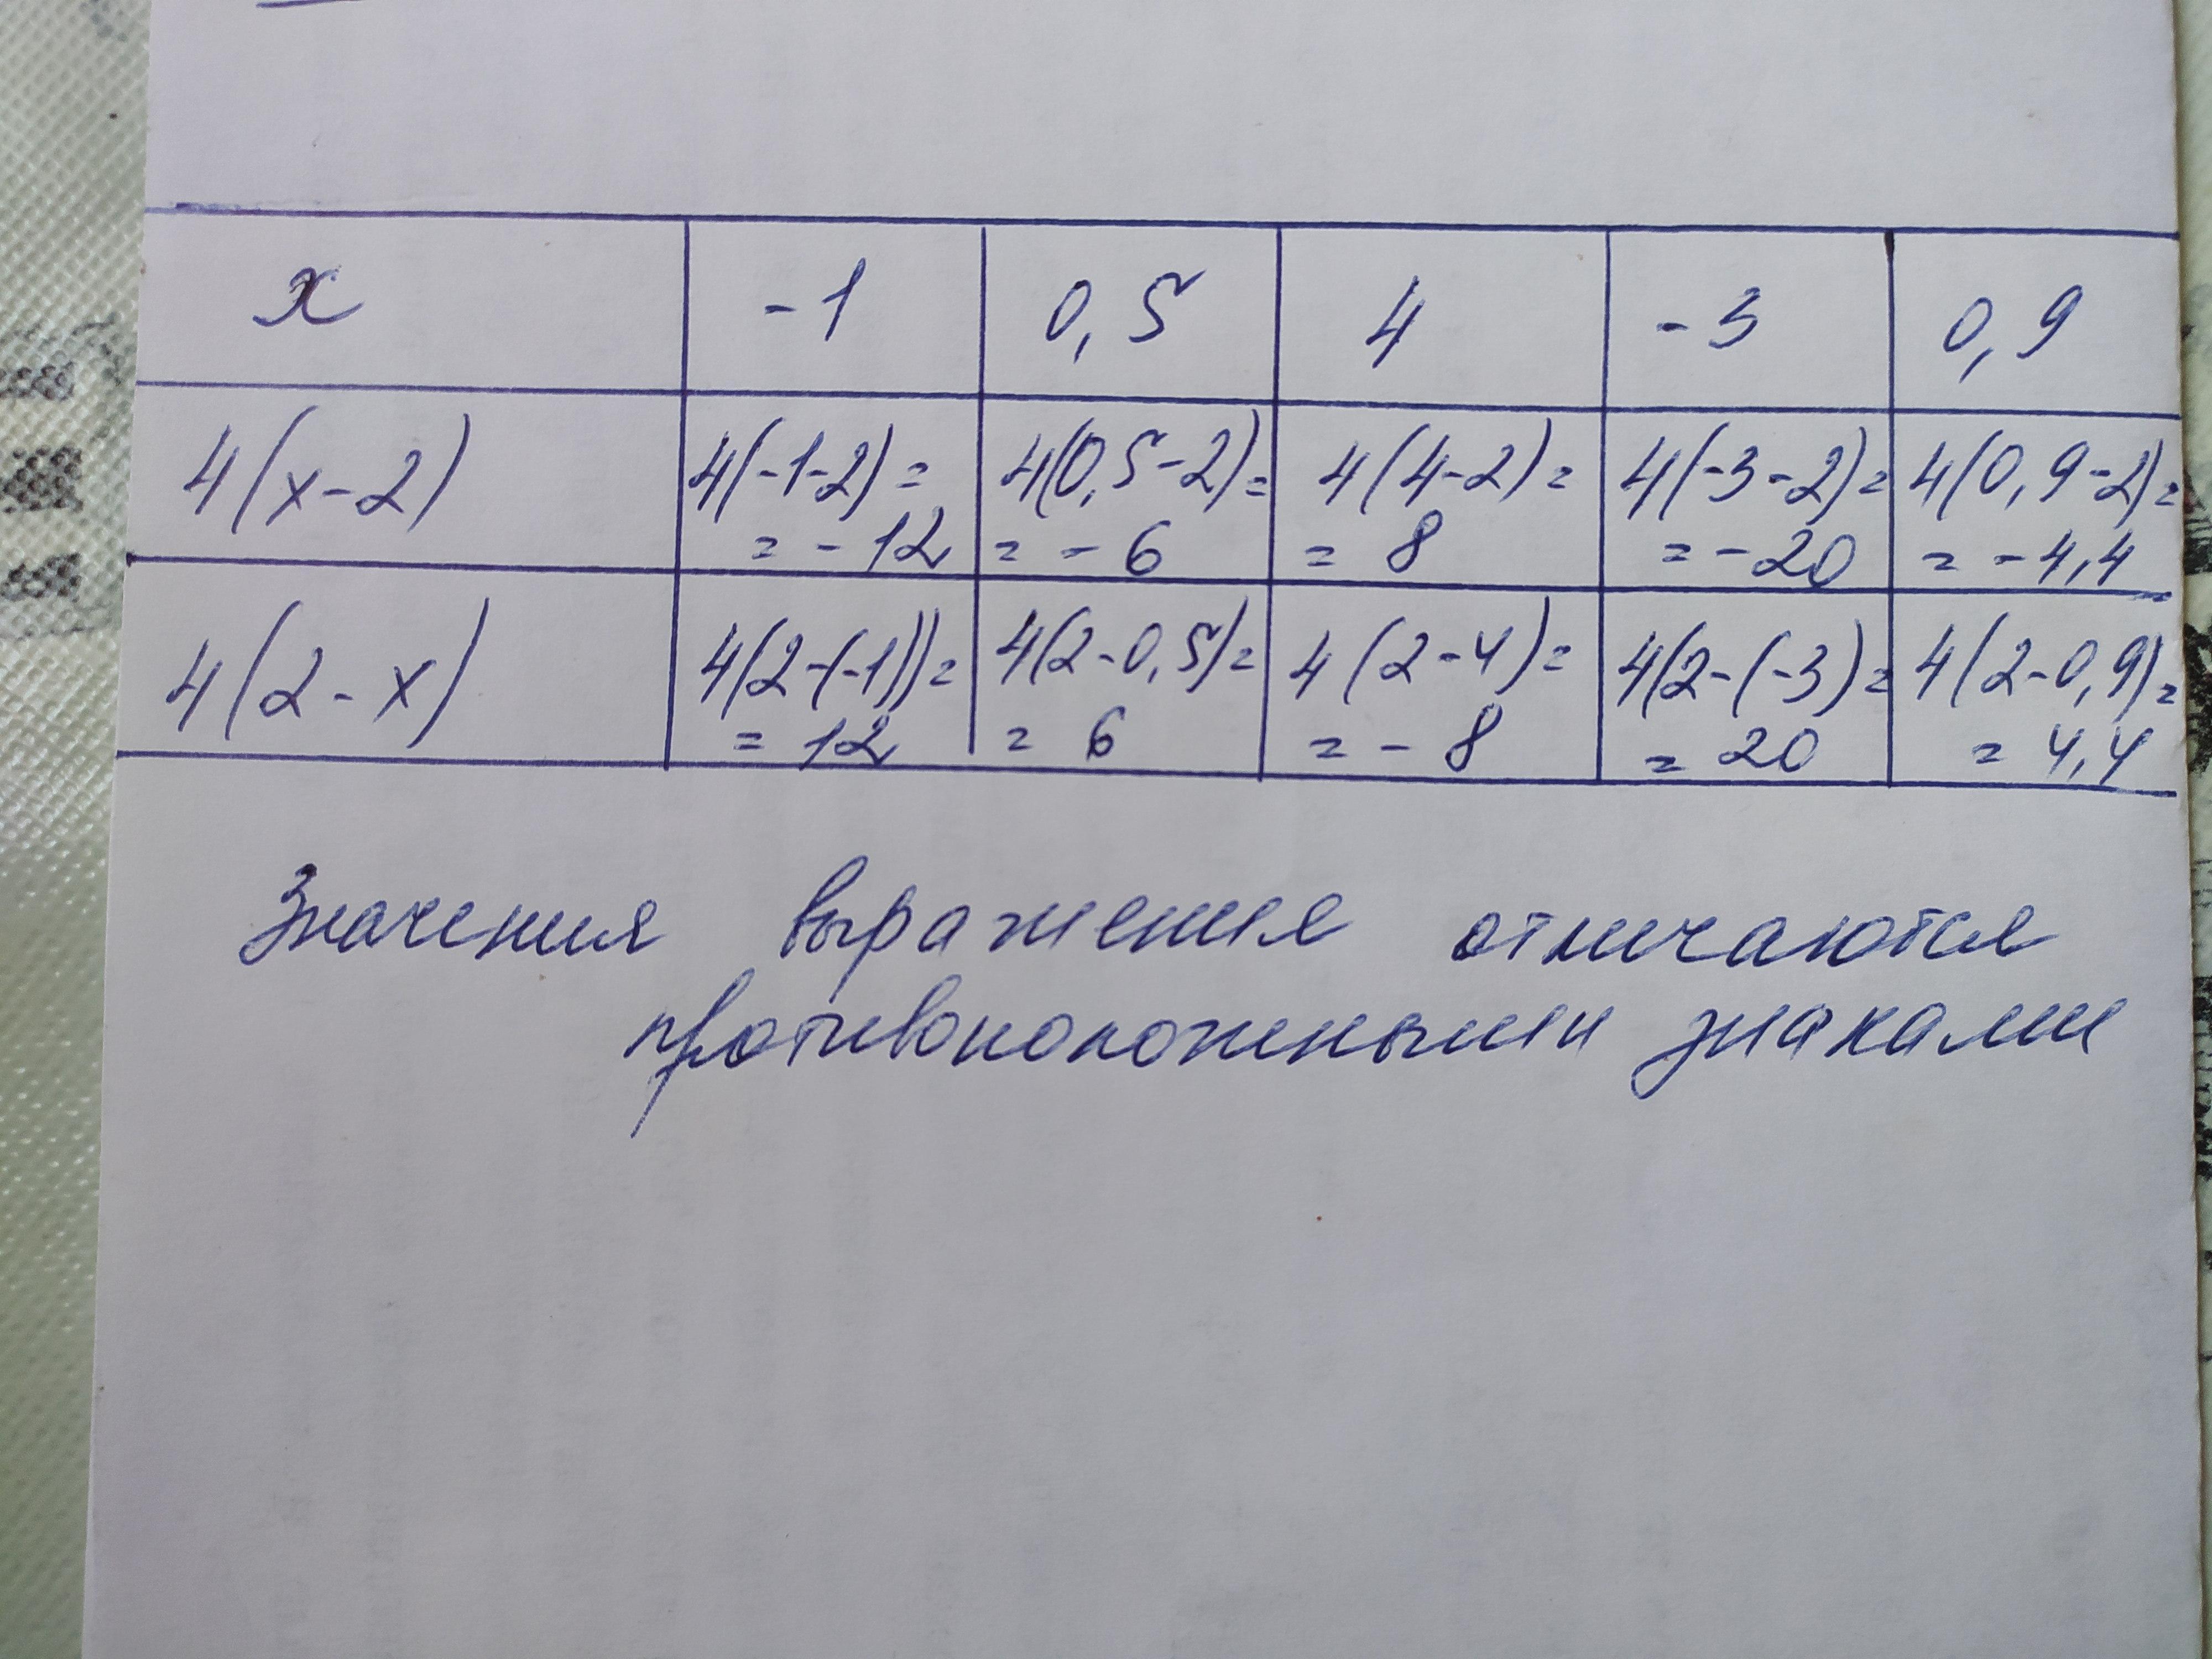 x -1 0,5 4 -3 0,9
4(x-2) 4(-1-2)= 4(0,5-2)= 4(4-2)= 4(-3-2)= 4(0,9-2)=
= -12 = -6 = 8 = -20 = -4,4
4(2-x) 4(2-(-1))= 4(2-0,5)= 4(2-4)= 4(2-(-3)= 4(2-0,9)=
= 12 = 6 = -8 = 20 = 4,4
Значения выражения отличаются
противоположными знаками